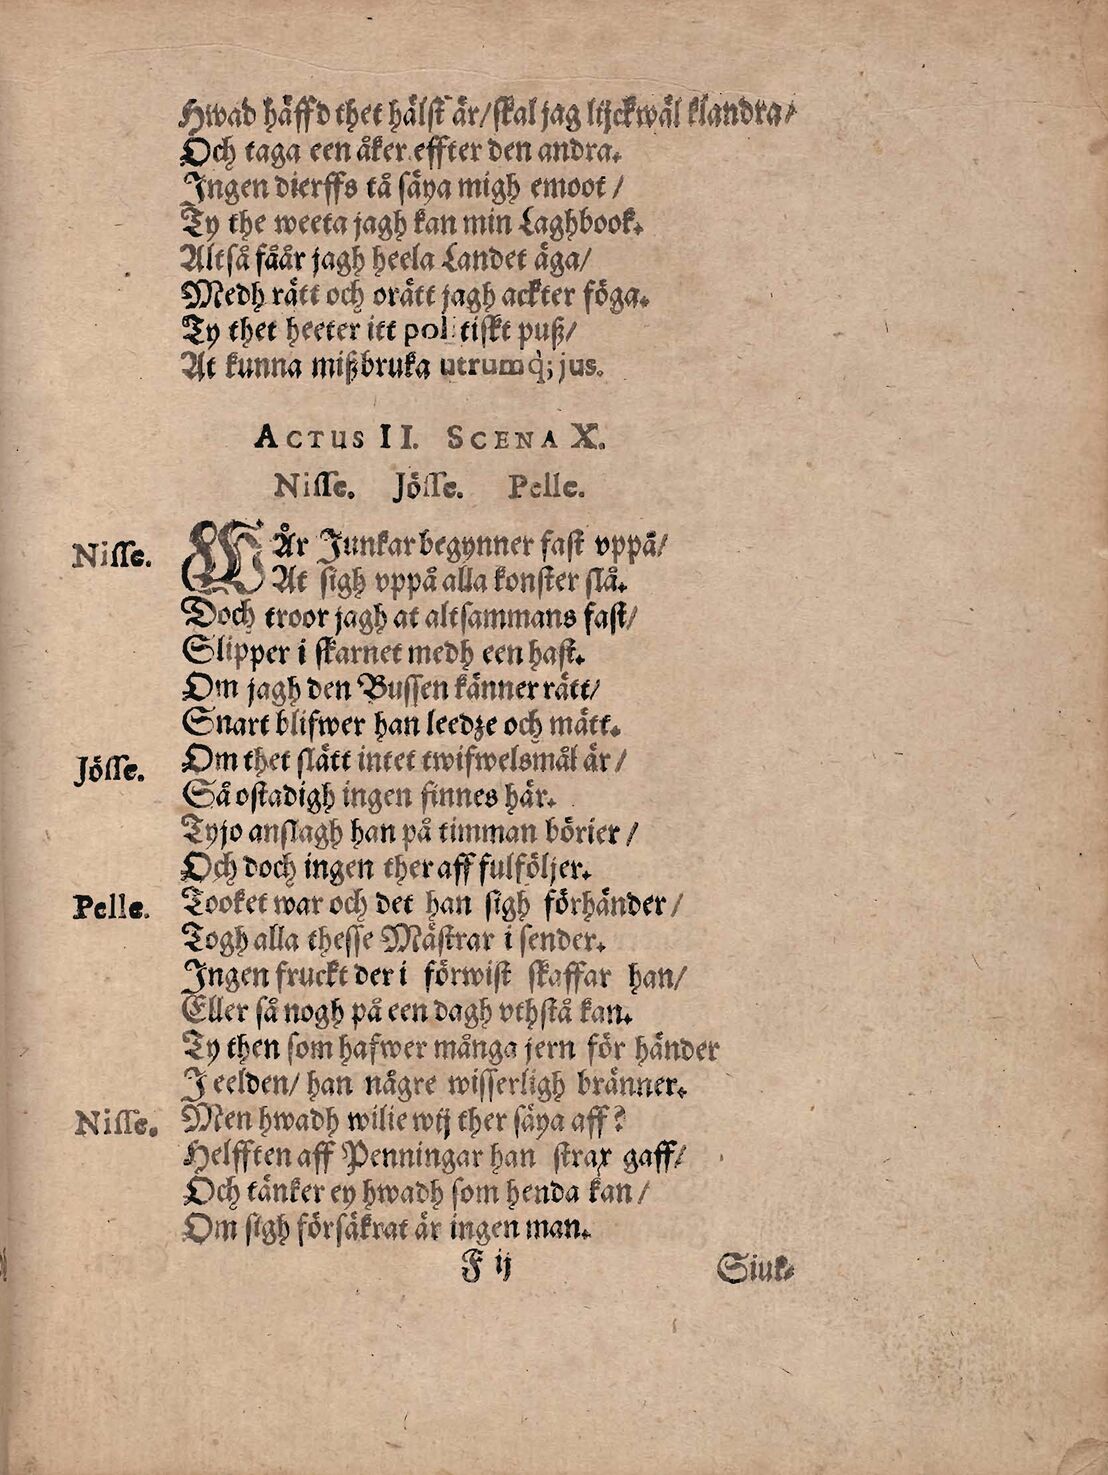 Hwad häffd thet hälst är/ skal jag lijckwäl klandra/
Och taga een åker effter den andra.
Ingen dierffs tå säya migh emoot /
Ty the weeta jagh kan min Laghbook.
Altså fåår jagh heela Landet äga/
Medh rätt och orätt jagh ackter föga.
Ty thet heeter itt politiskt puß/
At kunna mißbruka utrumq; jus.
ACTUS II. SCENA X.
Nisse. Jösse. Pelle.
Nisse. WÅr Junkar begynner fast vppå/
At sigh vppå alla konster slå.
Doch troor jagh at altsammans fast/
Slipper i skarnet medh een hast.
Om jagh den Bussen känner rätt/
Snart blifwer han leedze och mätt.
Jösse. Om thet slätt intet twifwelsmål är/
Så ostadigh ingen finnes här.
Tyjo anslagh han på timman börier /
Och doch ingen ther aff fulföljer.
Pelle. Tooket war och det han sigh förhänder /
Togh alla thesse Mästrar i sender.
Ingen fruckt der i förwist skaffar han/
Eller så nogh på een dagh vthstå kan.
Ty then som hafwer många jern för händer
I eelden/ han någre wisserligh bränner.
Nisse. Men hwadh wilie wij ther säya aff?
Helfften aff Penningar han strax gaff/
Och tänker ey hwadh som henda kan /
Om sigh försäkrat är ingen man.
F ij Siuk-